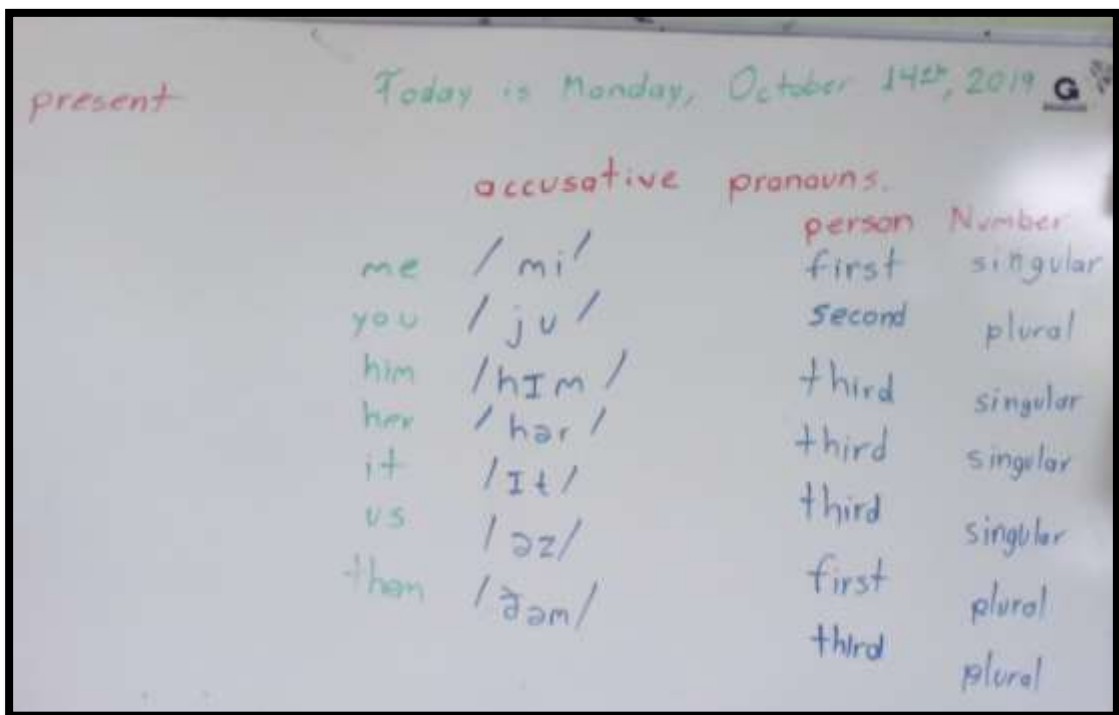 present Today is Monday, October 14th, 2019 G
accusative pronouns.
person Number
me /mi/ first singular
you /ju/ second plural
him /hIm/ third singular
her /hər/ third singular
it /It/ third singular
us /əz/ first plural
them /ðəm/ third plural